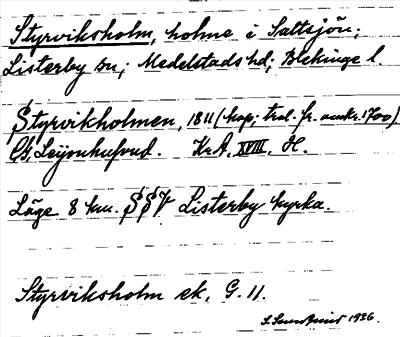 Styrviksholm, holme i Saltsjön;
Listerby sn; Medelstads hd; Blekinge l.
Styrvikholmen, 1811 (kop; trol. fr. omkr. 1700)
G. Leijonhufvud. Kr.A. XVIII, H.
Läge 8 km. SSV Listerby kyrka.
Styrviksholm ek, G. 11.
1936.